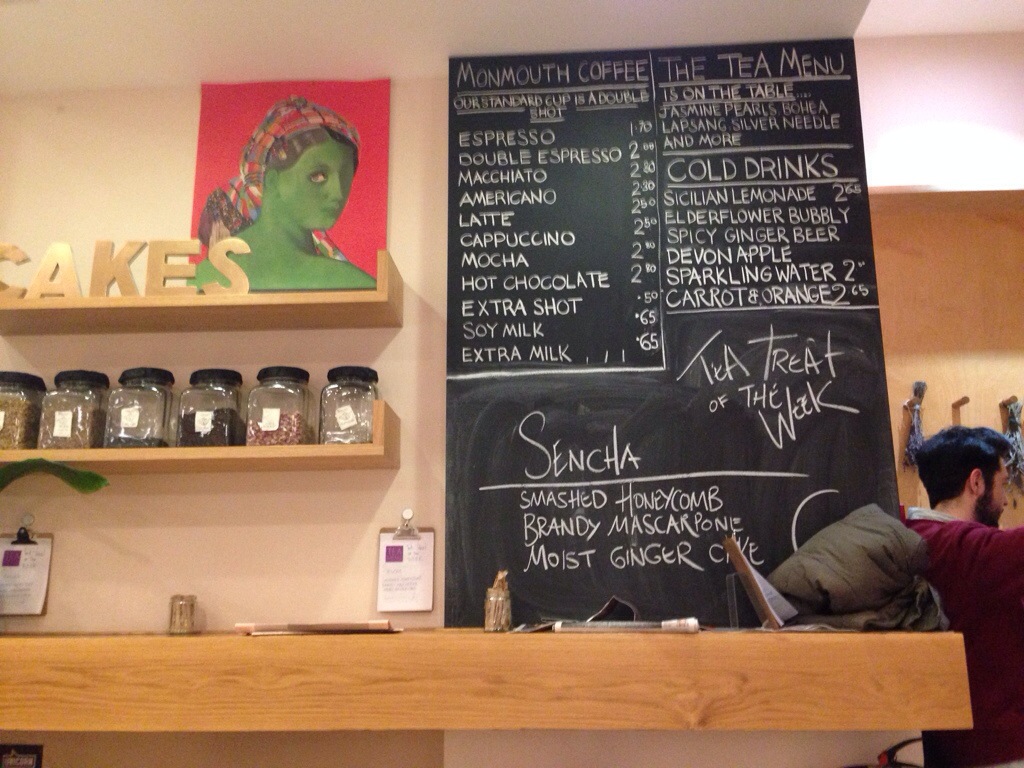 CAKES
MONMOUTH COFFEE
OUR STANDARD CUP IS A DOUBLE
SHOT
ESPRESSO 1.70
DOUBLE ESPRESSO 2.00
MACCHIATO
AMERICANO
LATTE
CAPPUCCINO
MOCHA
HOT CHOCOLATE 2.80
EXTRA SHOT .50
SOY MILK .65
EXTRA MILK .65
THE TEA MENU
IS ON THE TABLE....
JASMINE PEARLS BOHEA
LAPSANG, SILVER NEEDLE
AND MORE
COLD DRINKS
SICILIAN LEMONADE 2.65
ELDERFLOWER BUBBLY
SPICY GINGER BEER
DEVON APPLE
SPARKLING WATER
CARROT & ORANGE 2.65
TEA TREAT
OF THE
WEEK
SENCHA
SMASHED HONEYCOMB
BRANDY MASCARPONE
MOIST GINGER